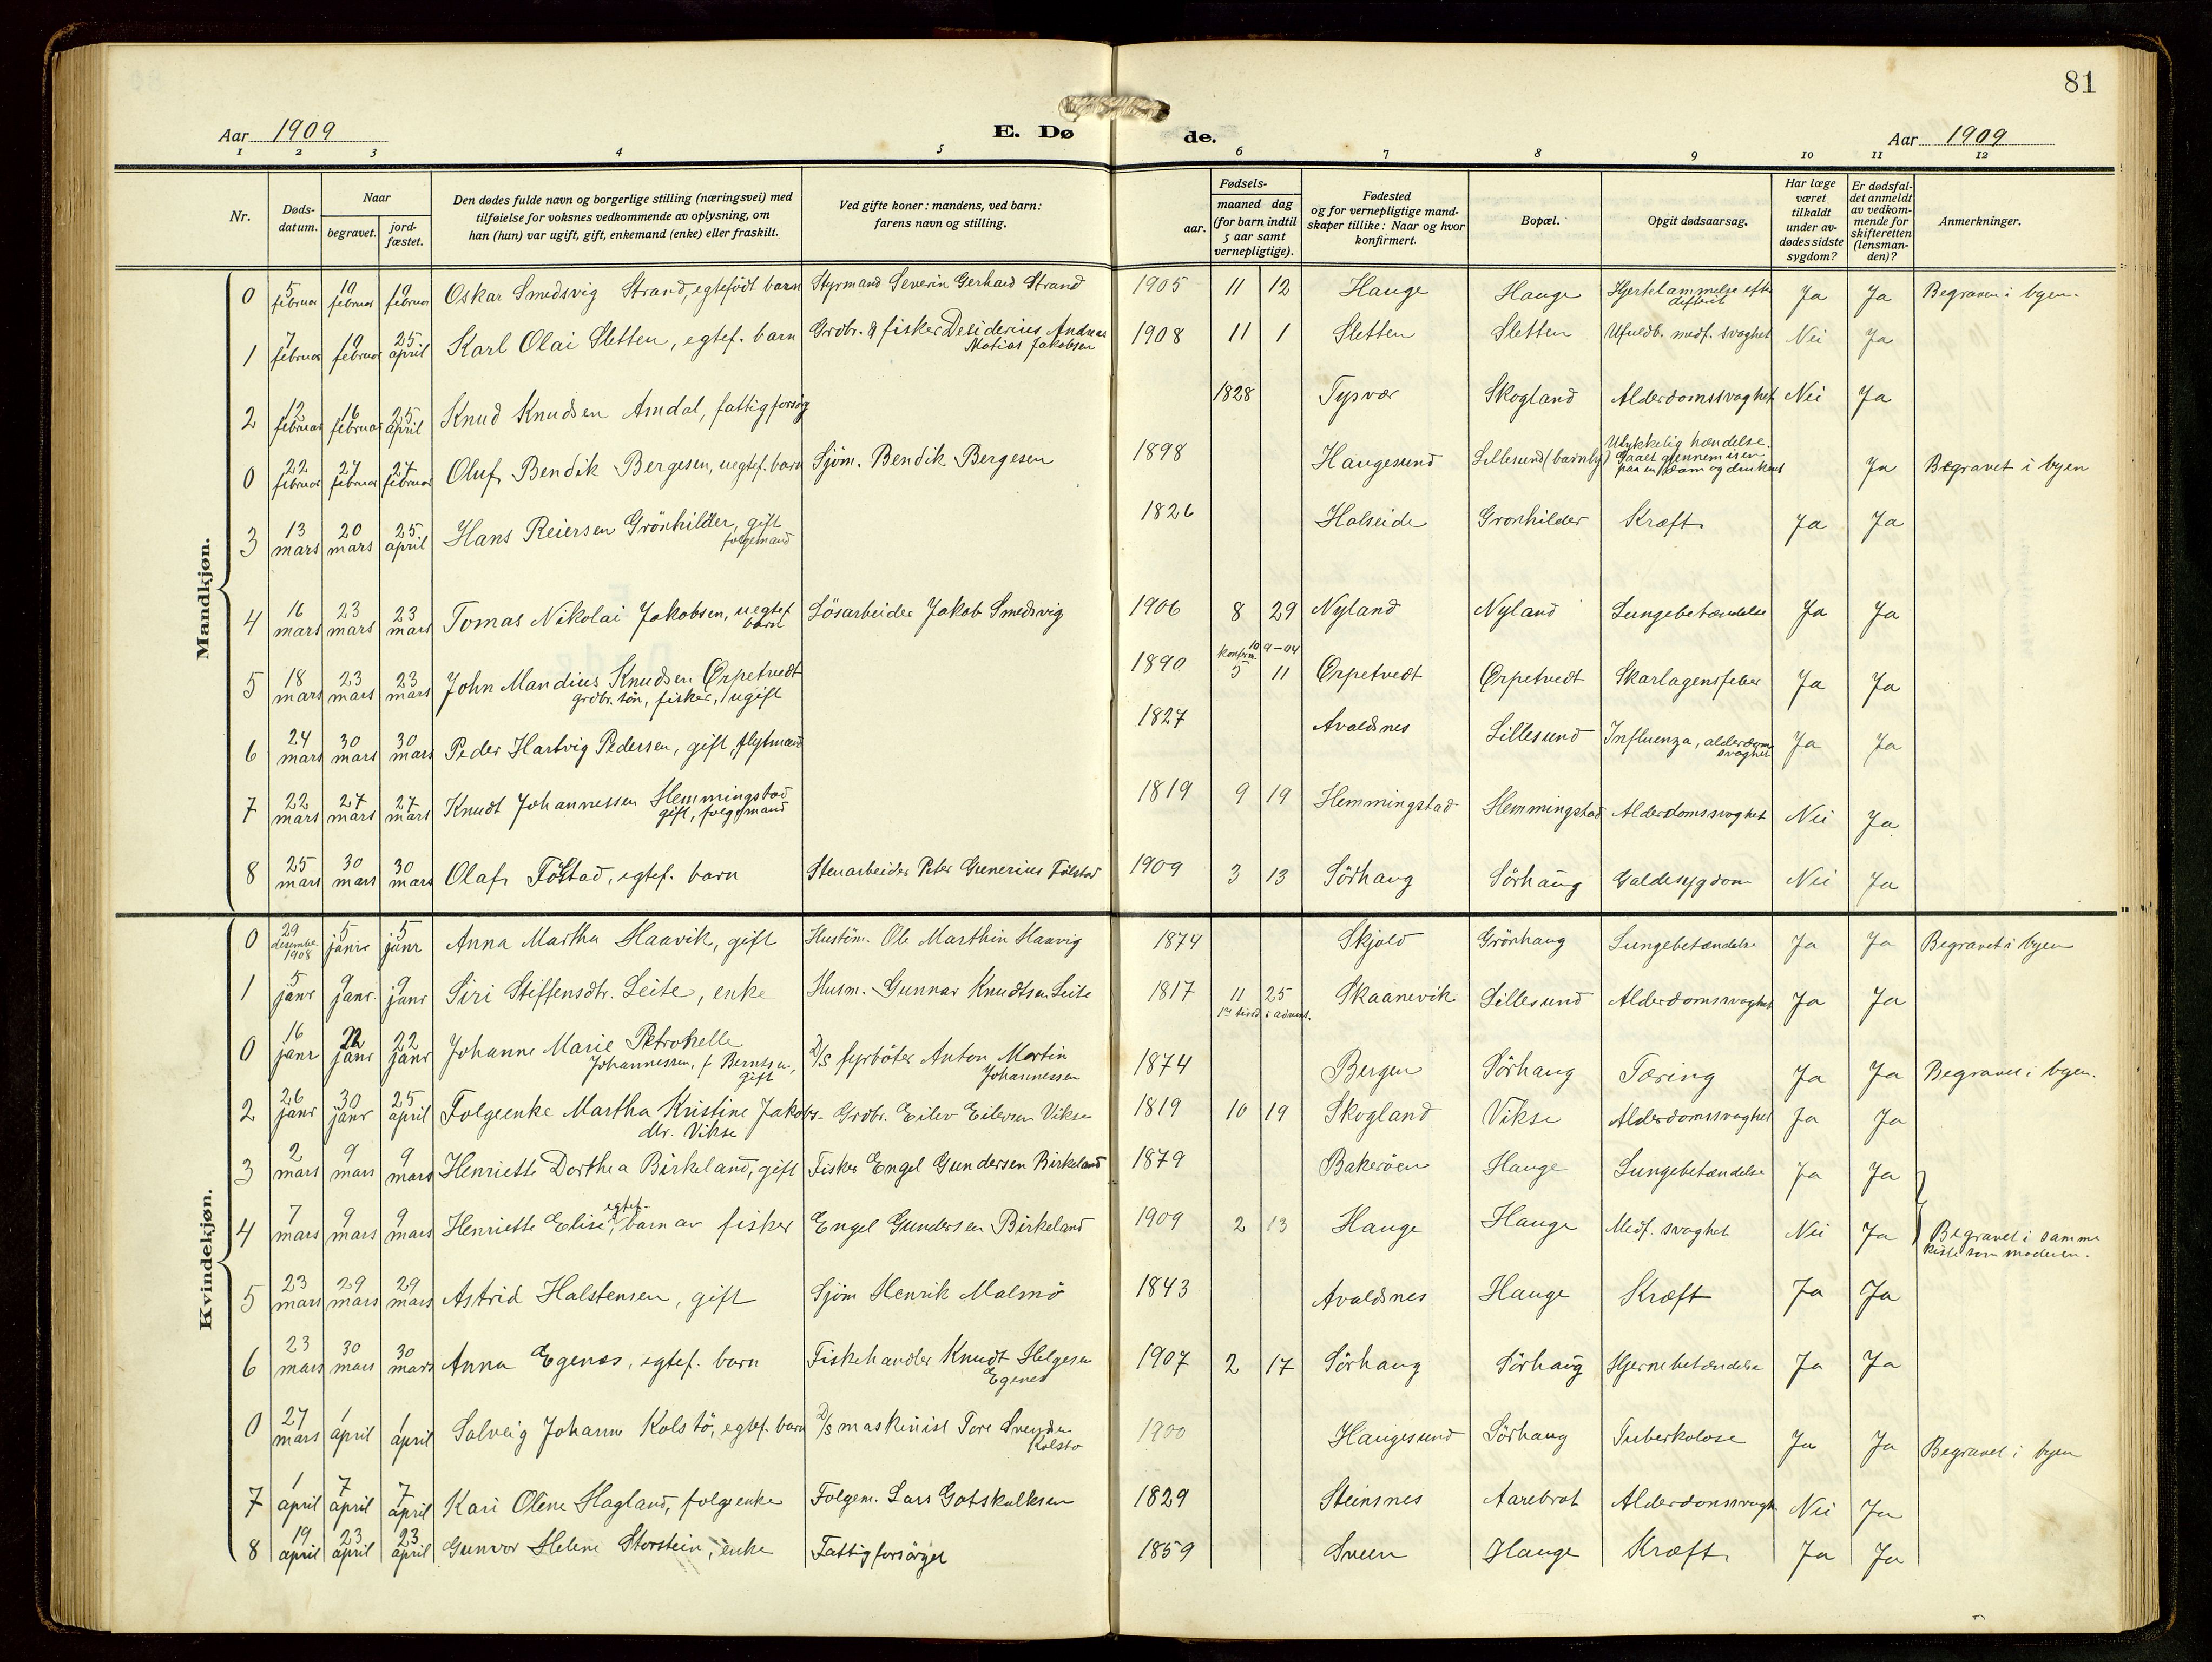 81
Aar 1909
E. Døde.
Aar 1909
1 2 3 4 5 6 7 8 9 10 11 12
Nr.
Døds-datum.
Naar
begravet.
jord-fæstet.
Den dødes fulde navn og borgerlige stilling (næringsvei) med
tilføielse for voksnes vedkommende av oplysning, om
han (hun) var ugift, gift, enkemand (enke) eller fraskilt.
Ved gifte koner: mandens, ved barn:
farens navn og stilling.
Fødsels-
aar.
maaned dag
(for barn indtil
5 aar samt
vernepligtige).
Fødested
og for vernepligtige mand-
skaper tillike: Naar og hvor
konfirmert.
Bopæl.
Opgit dødsaarsag.
Har læge
været
tilkaldt
under av-
dødes sidste
sygdom?
Er dødsfal-
det anmeldt
av vedkom-
mende for
skifteretten
(lensman-
den)?
Anmerkninger.
Mandkjøn.
0 5 februar 10 februar 10 februar Oskar Smedsvig Strand, egtefödt barn Styrmand Severin Gerhard Strand 1905 11 12 Hauge Hauge Hjertelammelse efter difterit Ja Ja Begraven i byen.
1 7 februar 19 februar 25 april Karl Olai Sletten, egtef. barn Grdbr. & fisker Desiderius Andreas Matias Jakobsen 1908 11 1 Sletten Sletten Ufuldb. medf. svaghet Nei Ja
2 12 februar 16 februar 25 april Knud Knudsen Amdal, fattigforsörg 1828 Tysvær Skogland Alderdomssvaghet Nei Ja
0 22 februar 27 februar 27 februar Oluf Bendik Bergesen, uegtef. barn Sjöm. Bendik Bergesen 1898 Haugesund Lillesund (barnby) Ulykkelig hændelse. Gaaet gjennem isen paa en dam og druknet Ja Begravet i byen
3 13 mars 20 mars 25 april Hans Reiersen Grönhilder, gift folgemand 1826 Halseide Gronhilder Kræft. Ja Ja
4 16 mars 23 mars 23 mars Tomas Nikolai Jakobsen, uegtef barn Lösarbeider Jakob Smedsvig 1906 8 29 Nyland Nyland Lungebetændelse Ja Ja
5 18 mars 23 mars 23 mars John Mandius Knudsen Ørpetvedt grdbr. sön, fisker, ugift 1890 konfirm. 10 9-04 5 11 Ørpetvedt Ørpetvedt Skarlagensfeber Ja Ja
6 24 mars 30 mars 30 mars Peder Hartvig Pedersen, gift, flytmand 1827 Avaldsnes Lillesund Influenza, alderdoms svaghet Ja Ja
7 22 mars 27 mars 27 mars Knudt Johannessen Hemmingstad gift, folgemand 1819 9 19 Hemmingstad Hemmingstad Alderdomssvaghet Nei Ja
8 25 mars 30 mars 30 mars Olaf Fölstad, egtef. barn Stenarbeider Peter Gunerius Fölstad 1909 3 13 Sörhaug Sörhaug Galdesygdom Nei Ja
Kvindekjøn.
0 29 desember 1908 5 janr 5 janr Anna Martha Haavik, gift Ole Marthin Haavig 1874 Skjold Grönhaug Lungebetændelse Ja Ja Begravet i byen
1 5 janr 9 janr. 9 janr Siri Steffensdtr. Leite, enke Husm. Gunnar Knudtsen Leite 1817 11 25 i advent. Skaanevik Lillesund Alderdomssvaghet Ja Ja
0 16 janr 22 janr 22 janr Johanne Marie Petronelle Johannessen, f Berntsen, gift D/s fyrböter Anton Martin Johannessen 1874 Bergen Sörhaug Tæring Ja Ja Begravet i byen.
2 26 janr 30 janr 25 april Folgeenke Martha Kristine Jakobs- dtr. Vikse Grdbr. Eilev Eilevsen Vikse 1819 10 19 Skogland Vikse Alderdomssvaghet Ja Ja
3 2 mars 9 mars 9 mars Henriette Dorthea Birkeland, gift Fisker Engel Gundersen Birkeland 1879 Bakeröen Hauge Lungebetændelse Ja Ja
4 7 mars 9 mars 9 mars Henriette Elise, egtef. barn av fisker Engel Gundersen Birkeland 1909 2 13 Hauge Hauge Medf. svaghet Nei Ja Begravet i samme kiste som moderen.
5 23 mars 29 mars 29 mars Astrid Halstensen, gift Sjöm Henrik Malmö 1843 Avaldsnes Hauge Kræft Ja Ja
6 23 mars 30 mars 30 mars Anna Egenæs, egtef. barn Fiskehandler Knudt Helgesen Egenes 1907 2 17 Sörhaug Sörhaug Hjernebetændelse Ja Ja
0 27 mars 1 april 1 april Solveig Johanne Kolstö, egtef. barn D/s maskinist Tore Svendsen Kolsto 1900 Haugesund Sörhaug Tuberkolose Ja Ja Begravet i byen
7 1 april 7 april 7 april Kari Oline Hagland, folgeenke Folgem. Lars Gotskalksen 1829 Steinsnes Aarebrot Alderdomssvagh Nei Ja
8 19 april 23 april 23 april Gunvor Helene Storstein, enke Fattigforsörget 1859 Sveen Hauge Kræft. Ja Ja